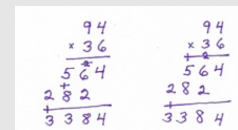 94
× 36
564
282
3384
94
× 36
564
282
3384